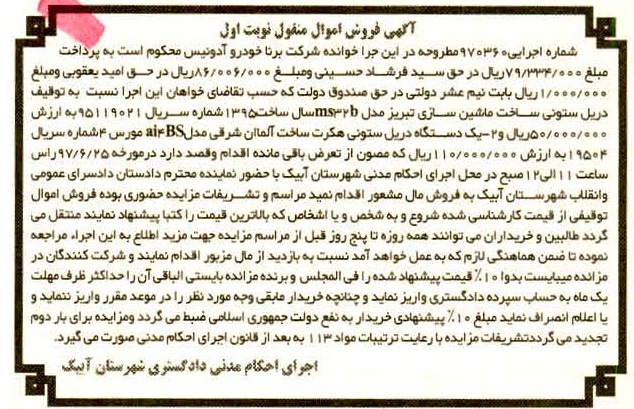 آگهی فروش اموال منقول نوبت اول
شماره اجرایی۹۷۰۳۶۰مطروحه در این جرا خوانده شرکت برنا خودرو آدونیس محکوم است به پرداخت
مبلغ ۷۹/۳۳۴/۰۰۰ریال در حق سید فرشاد حسینی ومبلغ ۸۶/۰۰۶/۰۰۰ریال در حق امید یعقوبی ومبلغ
۱/۰۰۰/۰۰۰ریال بابت نیم عشر دولتی در حق صندوق دولت که حسب تقاضای خواهان این اجرا نسبت به توقیف
دریل ستونی ساخت ماشین سازی تبریز مدل ms۳۲bسال ساخت۱۳۹۵شماره سریال ۹۵۱۱۹۰۲۱به ارزش
۵۰/۰۰۰/۰۰۰ریال و۲-یک دستگاه دریل ستونی هکرت ساخت آلمان شرقی مدلai۴BS مورس ۴شماره سریال
۱۹۵۰۴به ارزش ۱۱۰/۰۰۰/۰۰۰ریال که مصون از تعرض باقی مانده اقدام وقصد دارد درمورخه ۹۷/۶/۲۵راس
ساعت ۱۱الی۱۲صبح در محل اجرای احکام مدنی شهرستان آبیک با حضور نماینده محترم دادستان دادسرای عمومی
وانقلاب شهرستان آبیک به فروش مال مشعور اقدام نمید مراسم و تشریفات مزایده حضوری بوده فروش اموال
توقیفی از قیمت کارشناسی شده شروع و به شخص و یا اشخاص که بالاترین قیمت را کتبا پیشنهاد نمایند منتقل می
گردد طالبین و خریداران می توانند همه روزه تا پنج روز قبل از مراسم مزایده جهت مزید اطلاع به این اجراء مراجعه
نموده تا ضمن هماهنگی لازم که به عمل خواهد آمد نسبت به بازدید از مال مزبور اقدام نمایند و شرکت کنندگان در
مزائده میبایست بدوا ۱۰٪ قیمت پیشنهاد شده را فی المجلس و برنده مزانده بایستی الباقی آن را حداکثر ظرف مهلت
یک ماه به حساب سپرده دادگستری واریز نماید و چنانچه خریدار مابقی وجه مورد نظر را در موعد مقرر واریز ننماید و
یا اعلام انصراف نماید مبلغ ۱۰٪ پیشنهادی خریدار به نفع دولت جمهوری اسلامی ضبط می گردد ومزایده برای بار دوم
تجدید می گرددتشریفات مزایده با رعایت ترتیبات مواد ۱۱۳ به بعد از قانون اجرای احکام مدنی صورت می گیرد.
اجرای احکام مدنی دادگستری شهرستان آبیک